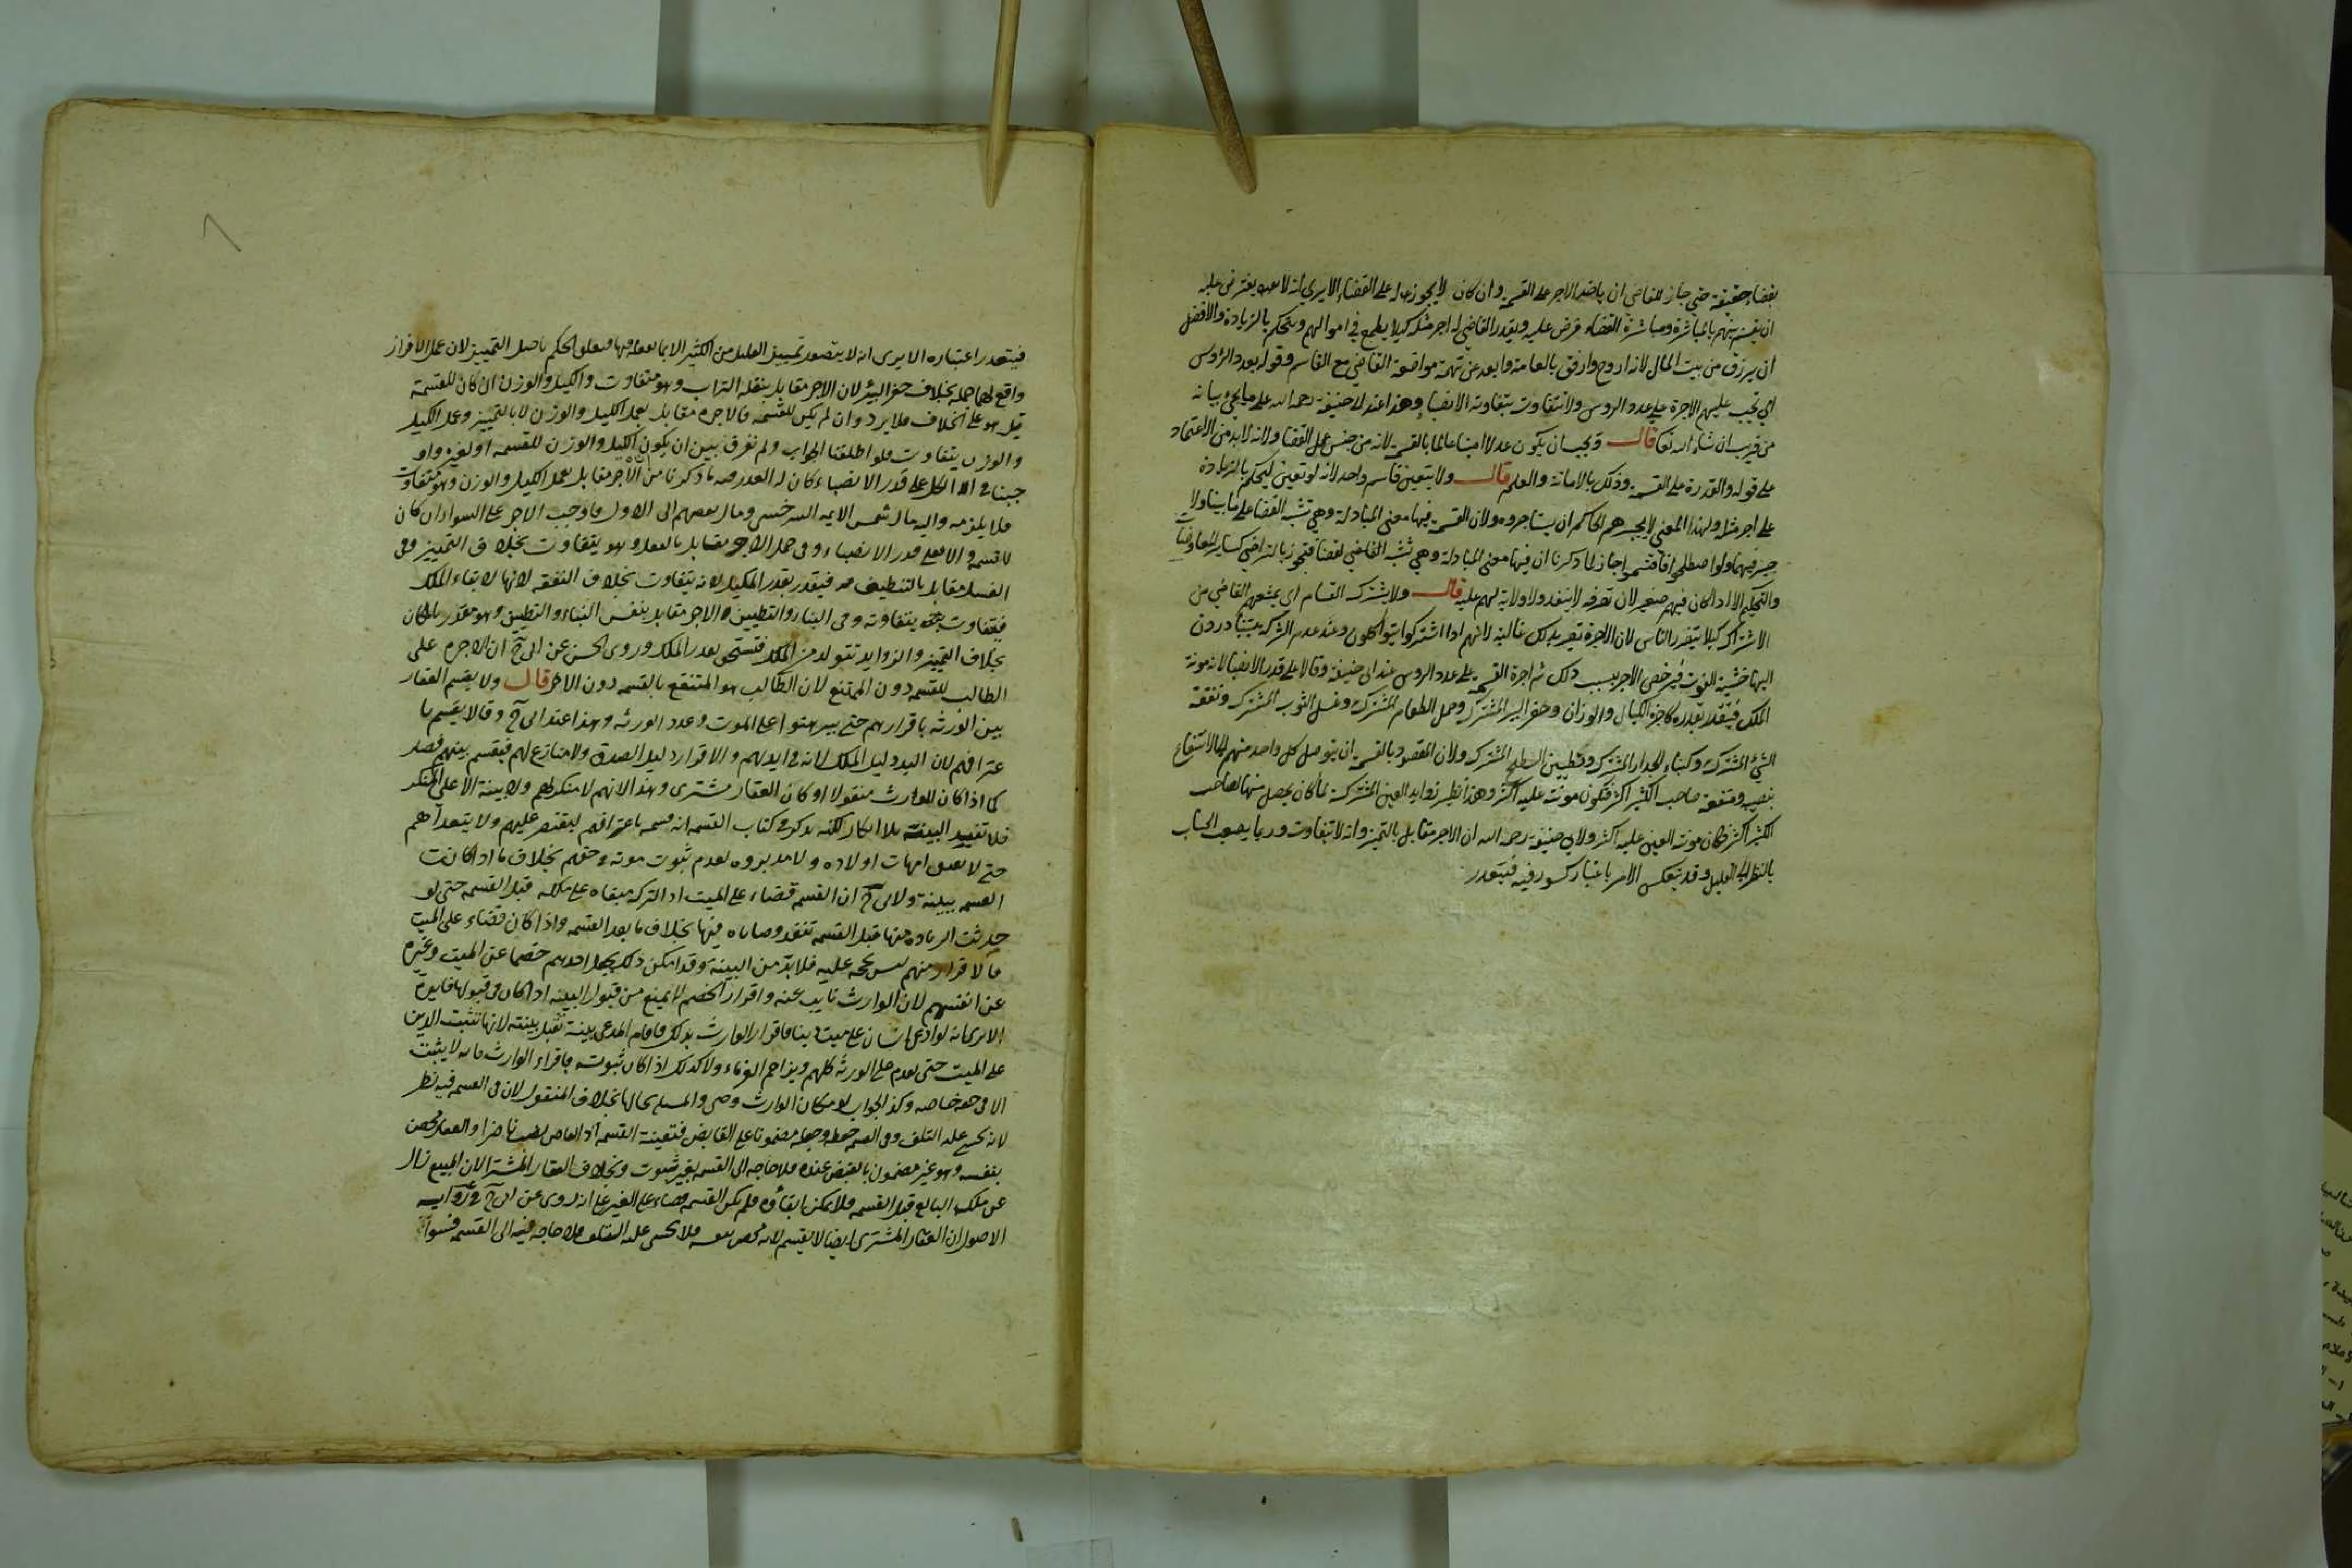 بقضاء حقيقة حتى جاز للقاضي ان ياخذ الاجر على القسمة وان كان لا يجوز له على القضاء الا يرى انه لا يعترض عليه
ان يقسم بينهم بالمباشرة ومباشرة القضاء فرض عليه ويقدر القاضي له اجر مثله كيلا يطمع في اموالهم ويتحكم بالزيادة والافضل
ان يرزق من بيت المال لانه اروح وارفق بالعامة وابعد عن تهمة مواضعة القاضي مع القاسم وقوله بعدد الرؤس
اي تجب عليهم الاجرة على عدد الروس ولا تتفاوت بتفاوت الانصباء وهذا عند ابي حنيفة رحمه الله على ما يجيء بيانه
من قريب ان شاء الله تعالى قال ويجب ان يكون عدلا امينا عالما بالقسمة لانه من جنس عمل القضا ولانه لا بد من الاعتماد
على قوله والقدرة على القسمة وذلك بالامانة والعلم قال ولا يتعين قاسم واحد لانه لو تعين ليحكم بالزيادة
على اجر مثله ولهذا المعنى لا يجبرهم الحاكم ان يستاجروه ولان القسمة فيها معنى المبادلة وهي تشبه القضا على ما بينا ولا
جبر فيهما ولو اصطلحوا فاقتسموا جاز لما ذكرنا ان فيها معنى المبادلة وهي تشبه القاضي لقضا فتجوز بالتراضي كسائر المعاوضات
والتحكيم الا اذا كان فيهم صغير لان تصرفه لا ينفذ ولا ولاية لهم عليه قال ولا يشترك القسام اي يمنعهم القاضي من
الاشتراك كيلا يتضرر الناس لان الاجرة تصير بذلك غالية لانهم اذا اشتركوا يتواكلون وعند عدم الشركة يتبادرون
اليها خشية الفوت فيرخص الاجر بسبب ذلك ثم اجرة القسمة على عدد الروس عند ابي حنيفة وقالا على قدر الانصبا لانه مونة
الملك فيتقدر بقدره كاجرة الكيال والوزان وحفر البير المشترك وحمل الطعام المشترك وغسل الثوب المشترك ونفقة
الشيء المشترك وكبناء الجدار المشترك وتطيين السطح المشترك ولان المقصود بالقسمة ان يتوصل كل واحد منهم الى الانتفاع
بنصيبه ومنفعة صاحب الكثير اكثر فتكون مونته عليه اكثر وهذا نظير زوايد العين المشتركة لما كان يحصل منها لصاحب
الكثير اكثر فكان مونة العين عليه اكثر ولابي حنيفة رحمه الله ان الاجر مقابل بالتميز وانه لا يتفاوت وربما يصعب الحساب
بالنظر الى القليل وقد ينعكس الامر باعتبار كسور فيه فيتعذر
فيتعذر اعتباره الا يرى انه لا يتصور تمييز القليل من الكثير الا بما يفعله فيهما فيتعلق الحكم باصل التمييز لان عمل الافراز
واقع لهما جملة بخلاف حفر البئر لان الاجر مقابل بنقل التراب وهو متفاوت والكيل والوزن ان كان للقسمة
قيل هو على الخلاف فلا يرد وان لم يكن للقسمة فالاجرة مقابل بعمل الكيل والوزن لا بالتمييز وعمل الكيل
والوزن يتفاوت فلو اطلقنا الجواب ولم نفرق بين ان يكون الكيل والوزن للقسمة او لغيره واو
جبنا في الكل على قدر الانصباء كان له العذر فيه ما ذكرنا من ان الاجر مقابل بعمل الكيل والوزن وهو متفاوت
فلا يلزمه واليه مال شمس الايمه السرخسي ومال بعضهم الى الاول فاوجب الاجر على السواء ان كان
للقسمة والا فعلى قدر الانصباء وفي حمل الاجر مقابل بالعمل وهو يتفاوت بخلاف التمييز وفي
الغسل مقابل بالتنظيف فيتقدر بقدر المكيل لانه يتفاوت بخلاف النفقه لانها لابقاء الملك
فتتفاوت بتفاوته وفي البناء والتطيين الاجر مقابل بنفس البناء والتطيين وهو مقدر بالمكان
بخلاف التمييز والزوايد تتولد من الملك فتستحق بقدر الملك وروى الحسن عن ابي ح ان الاجره على
الطالب للقسمة دون الممتنع لان الطالب هو المنتفع بالقسمه دون الاخر قال ولا يقسم العقار
بين الورثه باقرارهم حتى يبرهنوا على الموت وعدد الورثه وهذا عند ابي ح وقالا يقسم با
عترافهم لان اليد دليل الملك لانه في ايديهم والاقرار دليل الصدق ولا منازع لهم فيقسم بينهم فصار
كما اذا كان الموارث منقولا او كان العقار مشترى وهذا لانهم لا منكر لهم ولا بينة الا على المنكر
فلا تفيد البينة بلا انكار لكنه يذكر في كتاب القسمه انه قسمه باعترافهم ليقتصر عليهم ولا يتعداهم
حتى لا تعتق امهات اولاده ولا مدبروه لعدم ثبوت موته في حقهم بخلاف ما اذا كانت
القسمه ببينة ولابي ح ان القسمه قضاء على الميت اذ التركه مبقاه على ملكه قبل القسمه حتى لو
حدثت الزياده منها قبل القسمه تنفذ وصاياه فيها بخلاف ما بعد القسمه واذا كان قضاء على الميت
فالاقرار منهم ليس بحجه عليه فلا بد من البينة وقد امكن ذلك بجعل احدهم خصما عن الميت وغيره
عن انفسهم لان الوارث نايب عنه واقرار الخصم لا يمنع من قبول البينه اذا كان في قبولها فايدة
الا يرى انه لو ادعى انسان على ميت دينا فاقر الوارث بذلك فاقام المدعي بينة تقبل بينته لانها تثبت الدين
على الميت حتى يقدم على الورثه كلهم ويزاحم الغرماء ولا كذلك اذا كان ثبوته باقرار الوارث فانه لا يثبت
الا في حقه خاصه وكذا الجواب لو كان مكان الوارث وصي والمسله بحالها بخلاف المنقول لان في القسمه فيه نظر
لانه يخشى عليه التلف وفي القسمه حفظه وجعله مضمونا على القابض فتعينت القسمه اذ القاضي نصب ناظرا والعقار محصن
بنفسه وهو غير مضمون بالقبض عنده فلا حاجه الى القسمه بغير ثبوت وبخلاف العقار المشترى لان المبيع زال
عن ملك البايع قبل القسمه فلا يمكن ابقاؤه فلم تكن القسمه قضاء على الغير على انه روى عن ابي ح في روايه
الاصول ان العقار المشترى ايضا لا يقسم لانه محصن بنفسه فلا يخشى عليه التلف فلا حاجه فيه الى القسمه فسوا